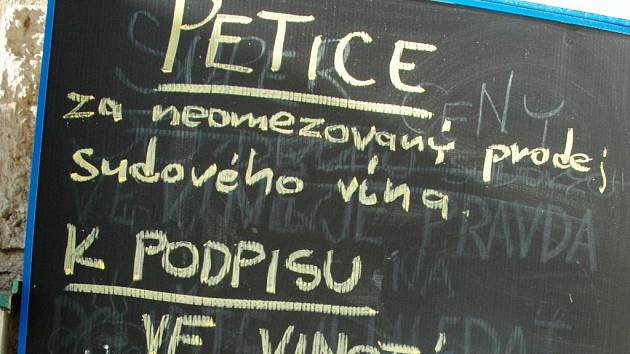 PETICE
za neomezovaný prodej
sudového vína.
K PODPISU
VE